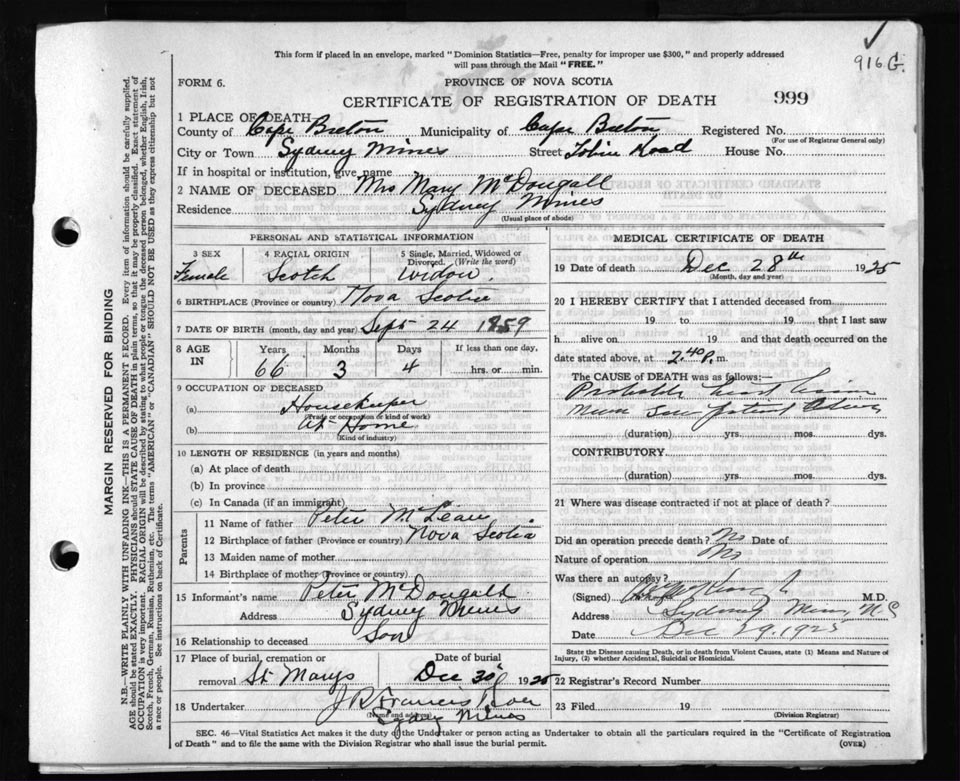 This form if placed in an envelope, marked "Dominion Statistics—Free, penalty for improper use $300," and properly addressed
will pass through the Mail "FREE."
916 G.
FORM 6.
PROVINCE OF NOVA SCOTIA
CERTIFICATE OF REGISTRATION OF DEATH
999
1 PLACE OF DEATH
County of Cape Breton Municipality of Cape Breton Registered No.
(For use of Registrar General only)
City or Town Sydney Mines Street Tobin Road House No.
If in hospital or institution, give name
2 NAME OF DECEASED Mrs Mary McDougall
Residence Sydney Mines
(Usual place of abode)
PERSONAL AND STATISTICAL INFORMATION
3 SEX 4 RACIAL ORIGIN 5 Single, Married, Widowed or
Divorced. (Write the word)
Female Scotch Widow
6 BIRTHPLACE (Province or country) Nova Scotia
7 DATE OF BIRTH (month, day and year) Sept 24 1859
8 AGE IN Years Months Days If less than one day,
66 3 4 hrs. or min.
9 OCCUPATION OF DECEASED
(a) Housekeeper
(Trade or occupation or kind of work)
(b) At Home
(Kind of industry)
10 LENGTH OF RESIDENCE (in years and months)
(a) At place of death
(b) In province
(c) In Canada (if an immigrant)
Parents
11 Name of father Peter McLean
12 Birthplace of father (Province or country) Nova Scotia
13 Maiden name of mother
14 Birthplace of mother (Province or country)
15 Informant's name Peter McDougall
Address Sydney Mines
16 Relationship to deceased Son
17 Place of burial, cremation or Date of burial
removal St Marys Dec 30 1925
18 Undertaker J R Francis
(Name and address)
Sydney Mines
MEDICAL CERTIFICATE OF DEATH
19 Date of death Dec 28th 1925
(Month, day and year)
20 I HEREBY CERTIFY that I attended deceased from
19 to 19, that I last saw
h alive on 19 and that death occurred on the
date stated above, at 2.40 P. m.
The CAUSE of DEATH was as follows:—
Probably heart
Never saw patient
(duration) yrs. mos. dys.
CONTRIBUTORY
(duration) yrs. mos. dys.
21 Where was disease contracted if not at place of death?
Did an operation precede death? No Date of
Nature of operation No
Was there an autopsy?
(Signed) M.D.
Address Sydney Mines, N.S
Date Dec 29. 1925
State the Disease causing Death, or in death from Violent Causes, state (1) Means and Nature of
Injury, (2) whether Accidental, Suicidal or Homicidal.
22 Registrar's Record Number
23 Filed 19
(Division Registrar)
SEC. 46—Vital Statistics Act makes it the duty of the Undertaker or person acting as Undertaker to obtain all the particulars required in the "Certificate of Registration
of Death" and to file the same with the Division Registrar who shall issue the burial permit.
(OVER)
MARGIN RESERVED FOR BINDING
N.B.—WRITE PLAINLY WITH UNFADING INK—THIS IS A PERMANENT RECORD. Every item of information should be carefully supplied.
AGE should be stated EXACTLY. PHYSICIANS should STATE CAUSE OF DEATH in plain terms, so that it may be properly classified. Exact statement of
OCCUPATION is very important. RACIAL ORIGIN will be described by stating to what people or tongue the deceased person belonged, whether English, Irish,
Scotch, French, German, Russian, Ruthenian, etc. The terms "AMERICAN" or "CANADIAN" SHOULD NOT BE USED as they express citizenship but not
a race or people. See instructions on back of Certificate.